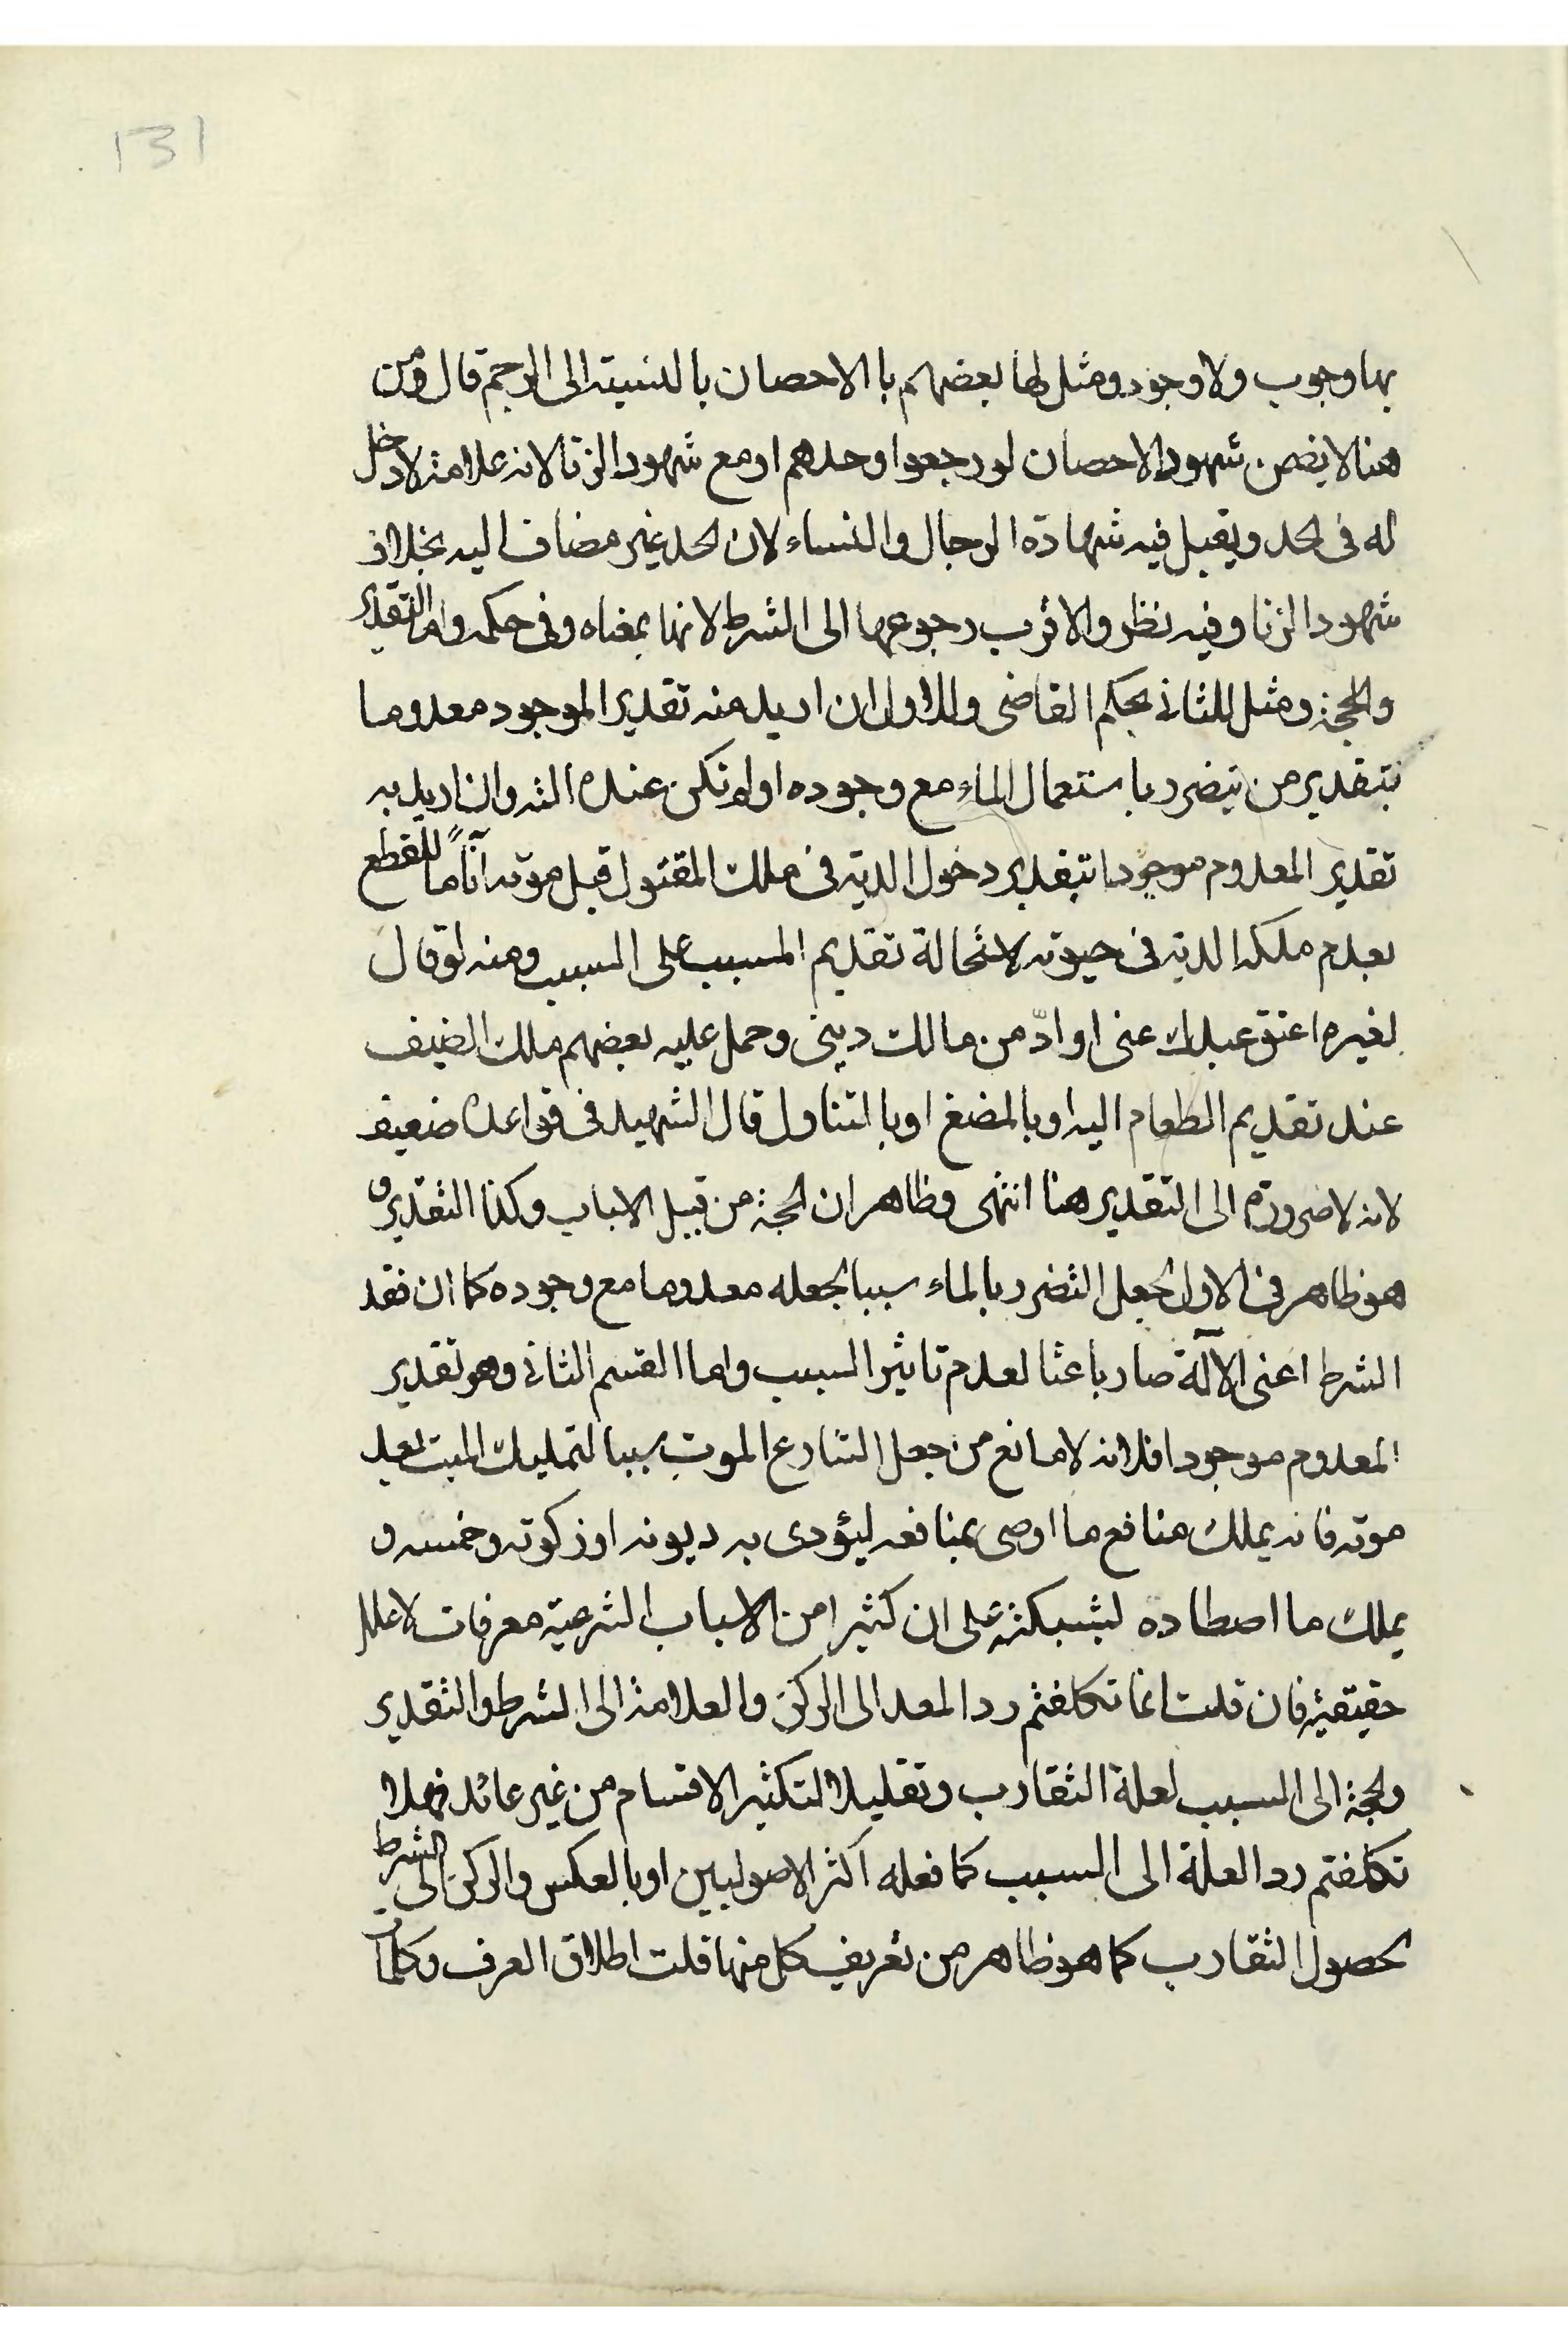 131
بها وجوب ولا وجود ومثل لها بعضهم با الاحصان بالنسبة الى الرجم قال ومن
هنا لا يضمن شهود الاحصان لو رجعوا وحدهم او مع شهود الزنا لانه علامة لا دخل
له فى الحد ويقبل فيه شهادة الرجال والنساء لان الحد غير مضاف اليه بخلاف
شهود الزنا وفيه نظر والاقرب رجوعها الى الشرط لانها بمعناه وفى حكمه واما التقدير
والحجة ومثل للثانى بحكم القاضى والاول ان اريد منه تقدير الموجود معدوما
بتقدير من يتضرر باستعمال الماء مع وجوده او لم تكن عنده وان اريد به
تقدير المعدوم موجودا بتقدير دخول الدية فى ملك المقتول قبل موته آناً ما للقطع
بعدم ملكه الدية فى حيوته لاستحالة تقديم المسبب على السبب ومنه لو قال
لغيره اعتق عبدك عنى او ادّ من مالك دينى وحمل عليه بعضهم ملك الضيف
عند تقديم الطعام اليه او بالمضغ او بالتناول قال الشهيد فى قواعده ضعيف
لانه لا ضرورة الى التقدير هنا انتهى وظاهر ان الحجة من قبيل الاسباب وكذا التقدير و
هو ظاهر فى الاول لجعل التضرر بالماء سببا لجعله معدوما مع وجوده كما ان فقد
الشرط اعنى الآلة صار باعثا لعدم تاثير السبب واما القسم الثانى وهو تقدير
المعدوم موجودا فلانه لا مانع من جعل الشارع الموت سببا لتمليك الميت بعد
موته فانه يملك منافع ما اوصى بمنافعه ليؤدى به ديونه او زكوته وخمسه و
يملك ما اصطاده بشبكته على ان كثيرا من الاسباب الشرعية معرفات لا علل
حقيقية فان قلت انما تكلفتم رد المعد الى الركن والعلامة الى الشرط والتقدير
والحجة الى السبب لعلة التقارب وتقليلا لتكثير الاقسام من غير عائد فهلا
تكلفتم رد العلة الى السبب كما فعله اكثر الاصوليين او بالعكس والركن الى الشرط
لحصول التقارب كما هو ظاهر من تعريف كل منها قلت اطلاق العرف وكلمات